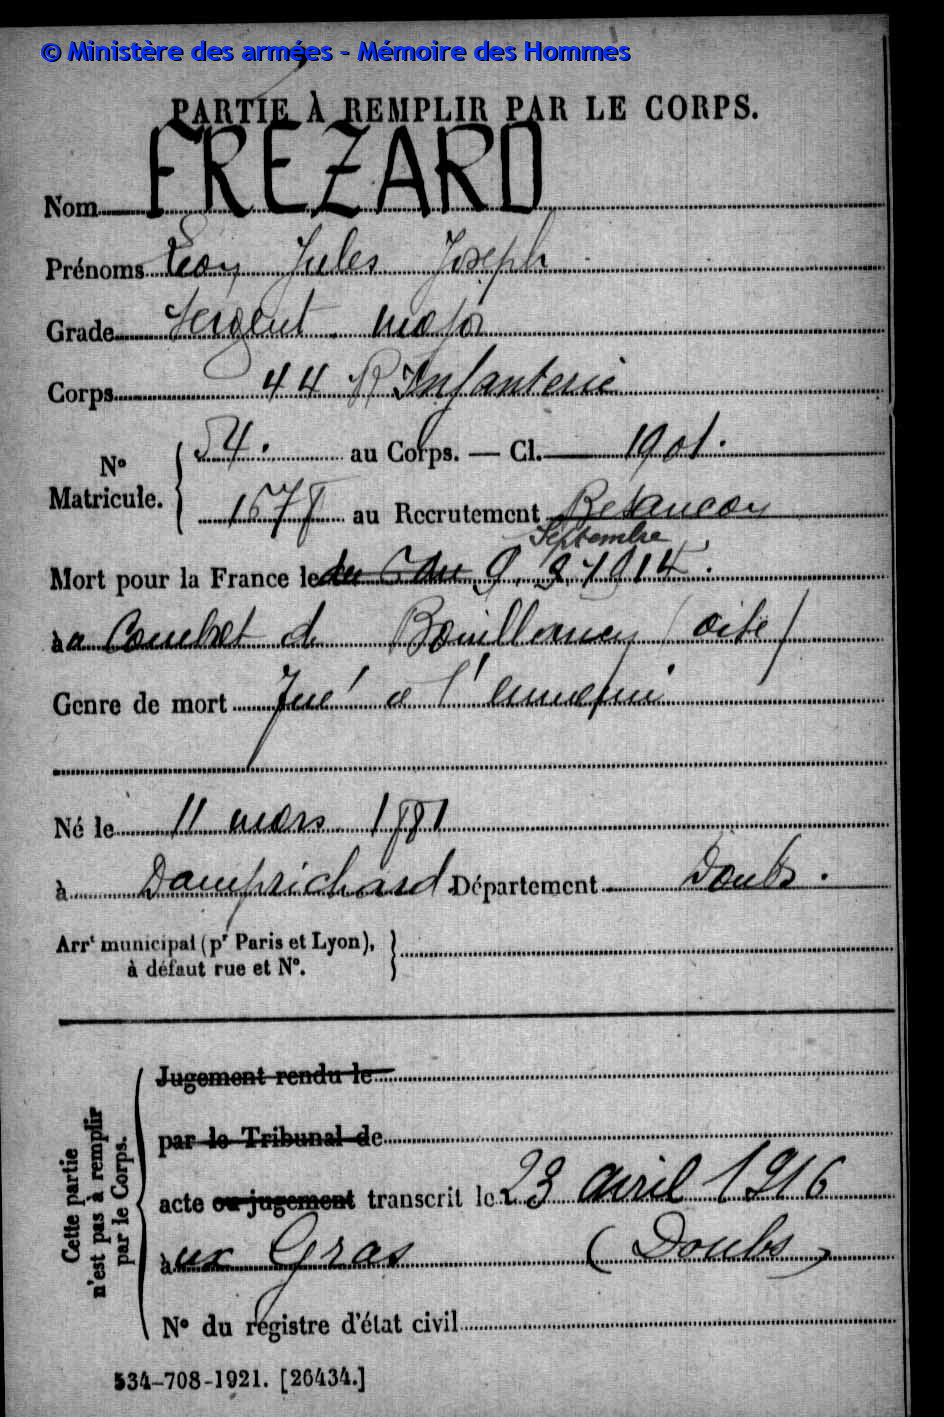 © Ministère des armées - Mémoire des Hommes
PARTIE À REMPLIR PAR LE CORPS.
Nom FREZARD
Prénoms Léon Jules Joseph
Grade Sergent major
Corps 44 R Infanterie
N° Matricule. { 54. au Corps. — Cl. 1901.
1578 au Recrutement Besançon
Septembre
Mort pour la France le du 7 au 9. 9. 1914.
à u Combat de Bouillancy (oise)
Genre de mort Tué à l'ennemi
Né le 11 mars 1881
à Damprichard Département Doubs.
Arrt municipal (pr Paris et Lyon),
à défaut rue et N°.
Cette partie
n'est pas à remplir
par le Corps.
Jugement rendu le
par le Tribunal de
acte ou jugement transcrit le 23 avril 1916
à ux Gras (Doubs)
N° du registre d'état civil
534-708-1921. [26434.]